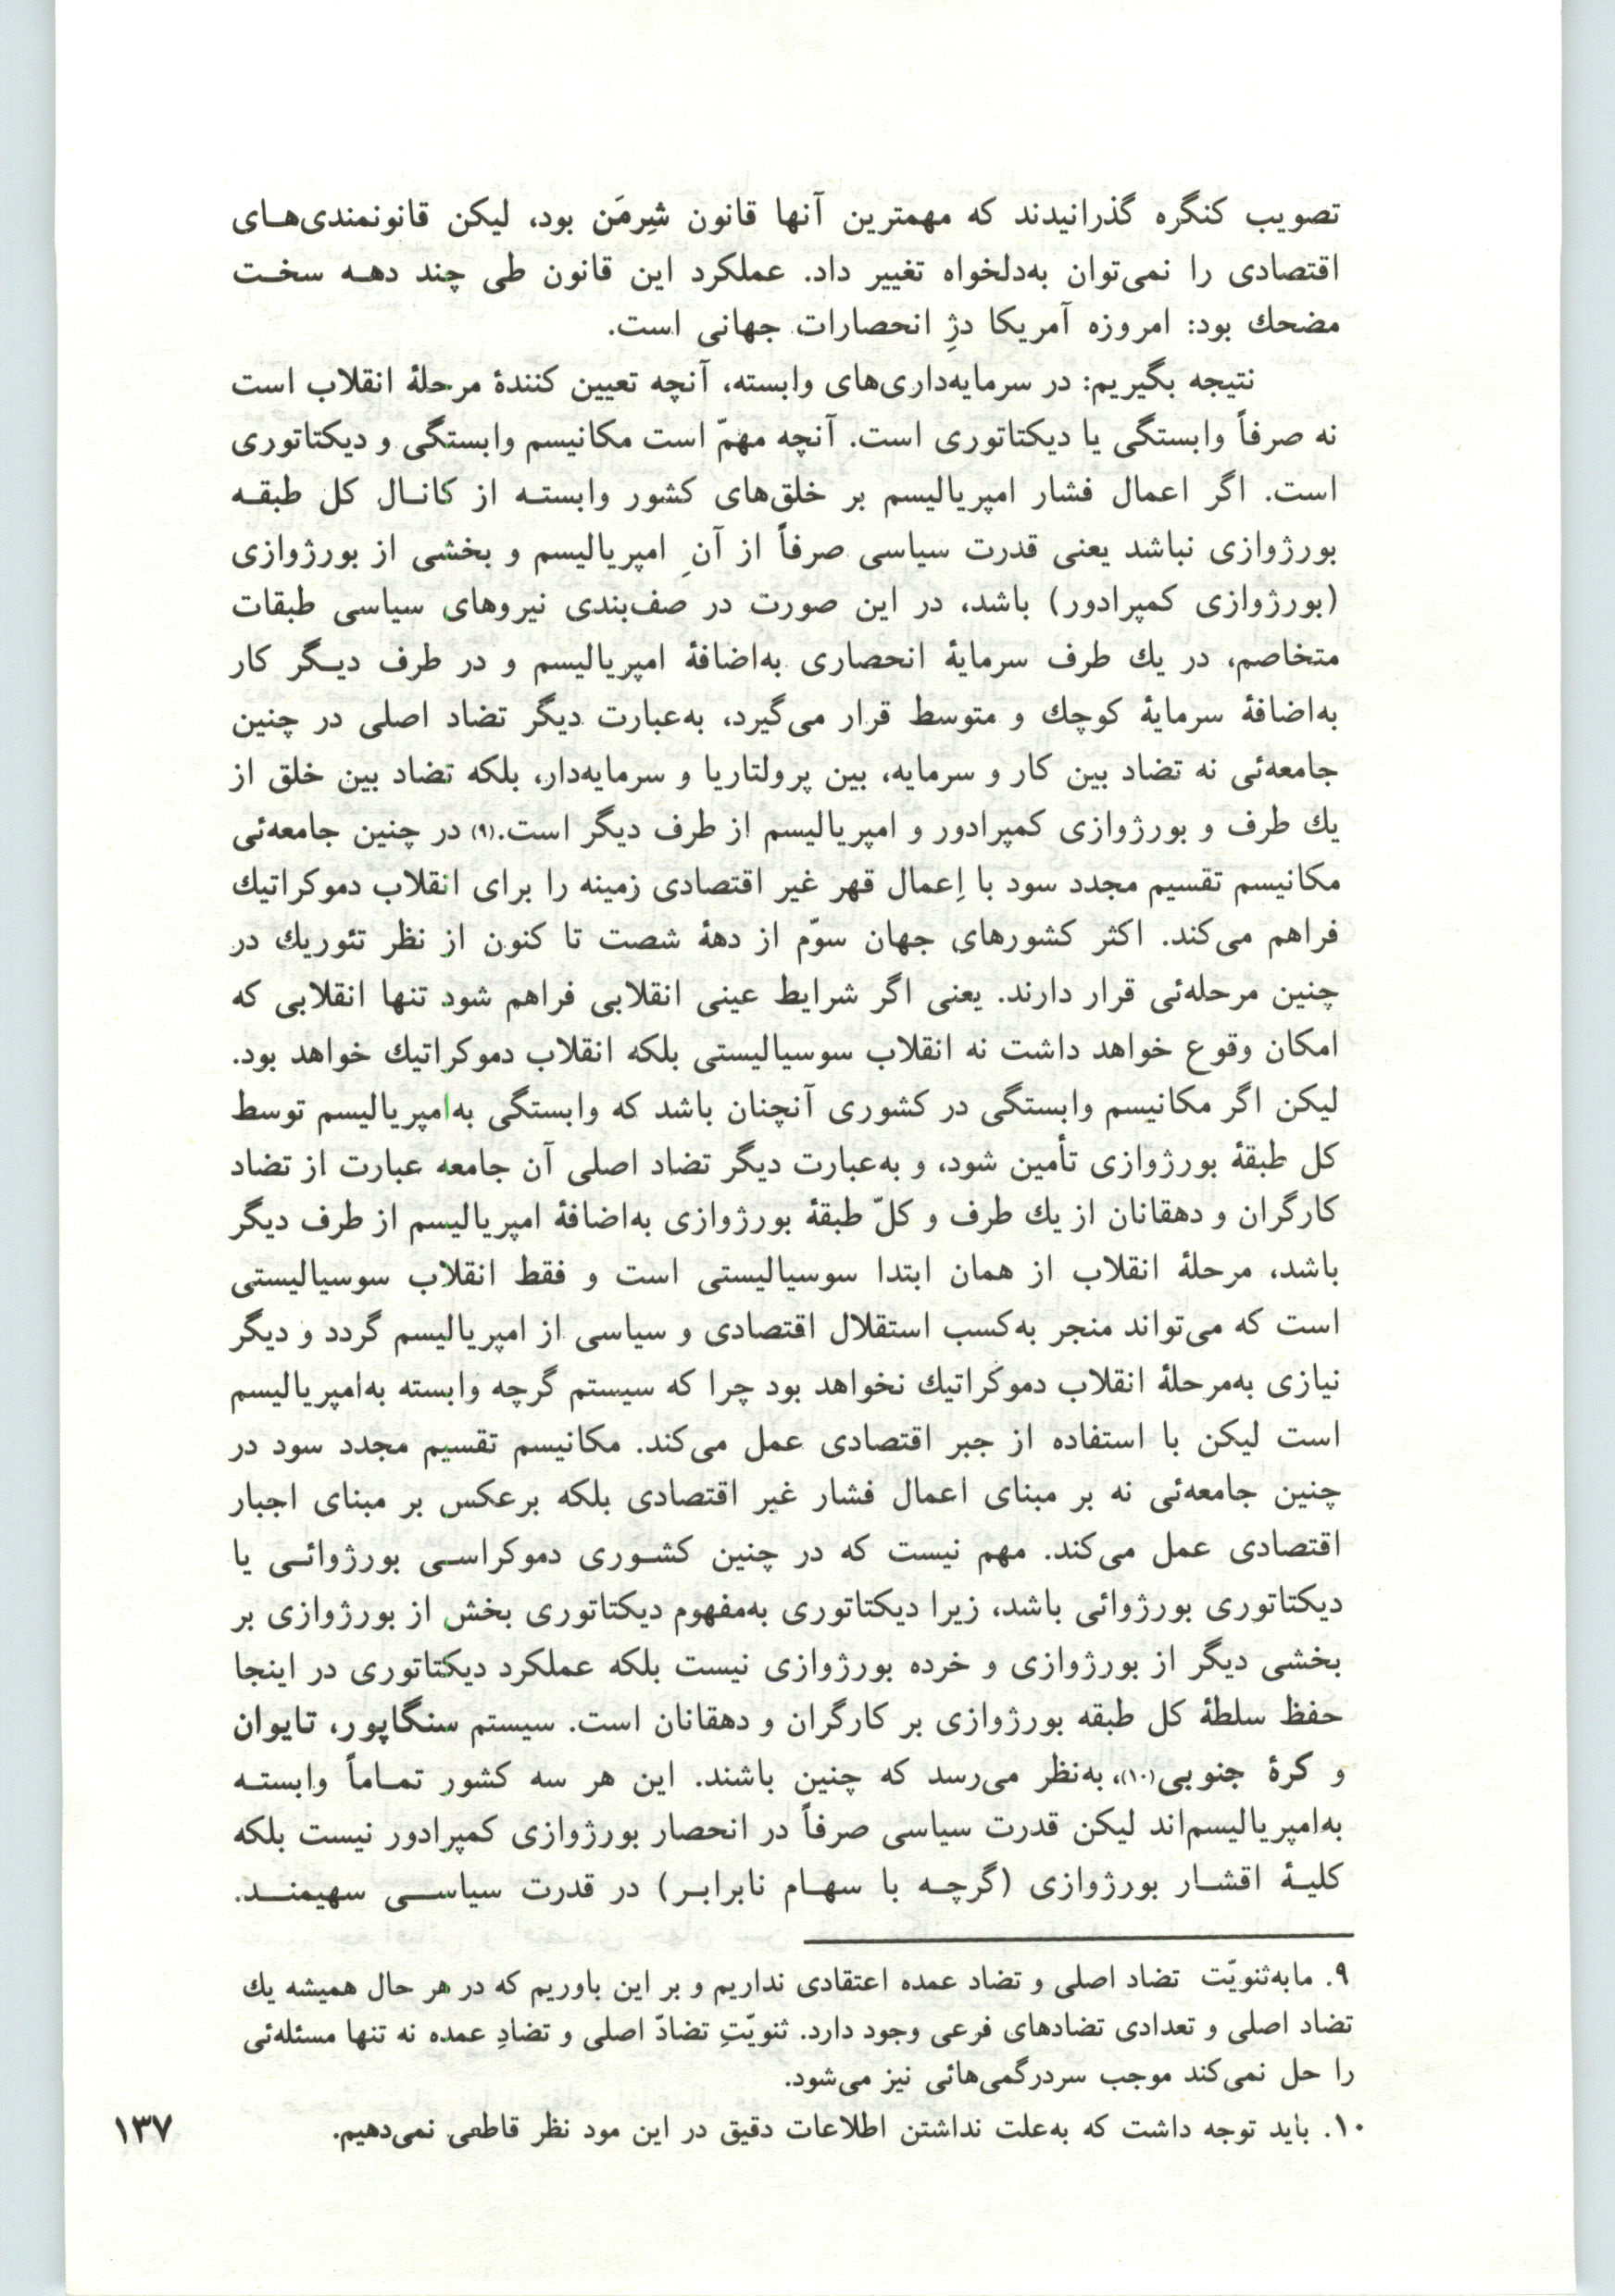 تصویب کنگره گذرانیدند که مهمترین آنها قانون شِرمَن بود، لیکن قانونمندی‌های
اقتصادی را نمی‌توان به‌دلخواه تغییر داد. عملکرد این قانون طی چند دهه سخت
مضحك بود: امروزه آمریکا دژِ انحصارات جهانی است.
نتیجه بگیریم: در سرمایه‌داری‌های وابسته، آنچه تعیین کنندهٔ مرحلهٔ انقلاب است
نه صرفاً وابستگی یا دیکتاتوری است. آنچه مهمّ است مکانیسم وابستگی و دیکتاتوری
است. اگر اعمال فشار امپریالیسم بر خلق‌های کشور وابسته از کانال کل طبقه
بورژوازی نباشد یعنی قدرت سیاسی صرفاً از آنِ امپریالیسم و بخشی از بورژوازی
(بورژوازی کمپرادور) باشد، در این صورت در صف‌بندی نیروهای سیاسی طبقات
متخاصم، در یك طرف سرمایهٔ انحصاری به‌اضافهٔ امپریالیسم و در طرف دیگر کار
به‌اضافهٔ سرمایهٔ کوچك و متوسط قرار می‌گیرد، به‌عبارت دیگر تضاد اصلی در چنین
جامعه‌ئی نه تضاد بین کار و سرمایه، بین پرولتاریا و سرمایه‌دار، بلکه تضاد بین خلق از
یك طرف و بورژوازی کمپرادور و امپریالیسم از طرف دیگر است.(۹) در چنین جامعه‌ئی
مکانیسم تقسیم مجدد سود با اِعمال قهر غیر اقتصادی زمینه را برای انقلاب دموکراتیك
فراهم می‌کند. اکثر کشورهای جهان سوّم از دههٔ شصت تا کنون از نظر تئوریك در
چنین مرحله‌ئی قرار دارند. یعنی اگر شرایط عینی انقلابی فراهم شود تنها انقلابی که
امکان وقوع خواهد داشت نه انقلاب سوسیالیستی بلکه انقلاب دموکراتیك خواهد بود.
لیکن اگر مکانیسم وابستگی در کشوری آنچنان باشد که وابستگی به‌امپریالیسم توسط
کل طبقهٔ بورژوازی تأمین شود، و به‌عبارت دیگر تضاد اصلی آن جامعه عبارت از تضاد
کارگران و دهقانان از یك طرف و کلّ طبقهٔ بورژوازی به‌اضافهٔ امپریالیسم از طرف دیگر
باشد، مرحلهٔ انقلاب از همان ابتدا سوسیالیستی است و فقط انقلاب سوسیالیستی
است که می‌تواند منجر به‌کسب استقلال اقتصادی و سیاسی از امپریالیسم گردد و دیگر
نیازی به‌مرحلهٔ انقلاب دموکراتیك نخواهد بود چرا که سیستم گرچه وابسته به‌امپریالیسم
است لیکن با استفاده از جبر اقتصادی عمل می‌کند. مکانیسم تقسیم مجدد سود در
چنین جامعه‌ئی نه بر مبنای اعمال فشار غیر اقتصادی بلکه برعکس بر مبنای اجبار
اقتصادی عمل می‌کند. مهم نیست که در چنین کشوری دموکراسی بورژوائی یا
دیکتاتوری بورژوائی باشد، زیرا دیکتاتوری به‌مفهوم دیکتاتوری بخش از بورژوازی بر
بخشی دیگر از بورژوازی و خرده بورژوازی نیست بلکه عملکرد دیکتاتوری در اینجا
حفظ سلطهٔ کل طبقه بورژوازی بر کارگران و دهقانان است. سیستم سنگاپور، تایوان
و کرهٔ جنوبی(۱۰)، به‌نظر می‌رسد که چنین باشند. این هر سه کشور تماماً وابسته
به‌امپریالیسم‌اند لیکن قدرت سیاسی صرفاً در انحصار بورژوازی کمپرادور نیست بلکه
کلیهٔ اقشار بورژوازی (گرچه با سهام نابرابر) در قدرت سیاسی سهیمند.
۹. مابه‌ثنویّت تضاد اصلی و تضاد عمده اعتقادی نداریم و بر این باوریم که در هر حال همیشه یك
تضاد اصلی و تعدادی تضادهای فرعی وجود دارد. ثنویّتِ تضادّ اصلی و تضادِ عمده نه تنها مسئله‌ئی
را حل نمی‌کند موجب سردرگمی‌هائی نیز می‌شود.
۱۰. باید توجه داشت که به‌علت نداشتن اطلاعات دقیق در این مود نظر قاطعی نمی‌دهیم.
۱۳۷